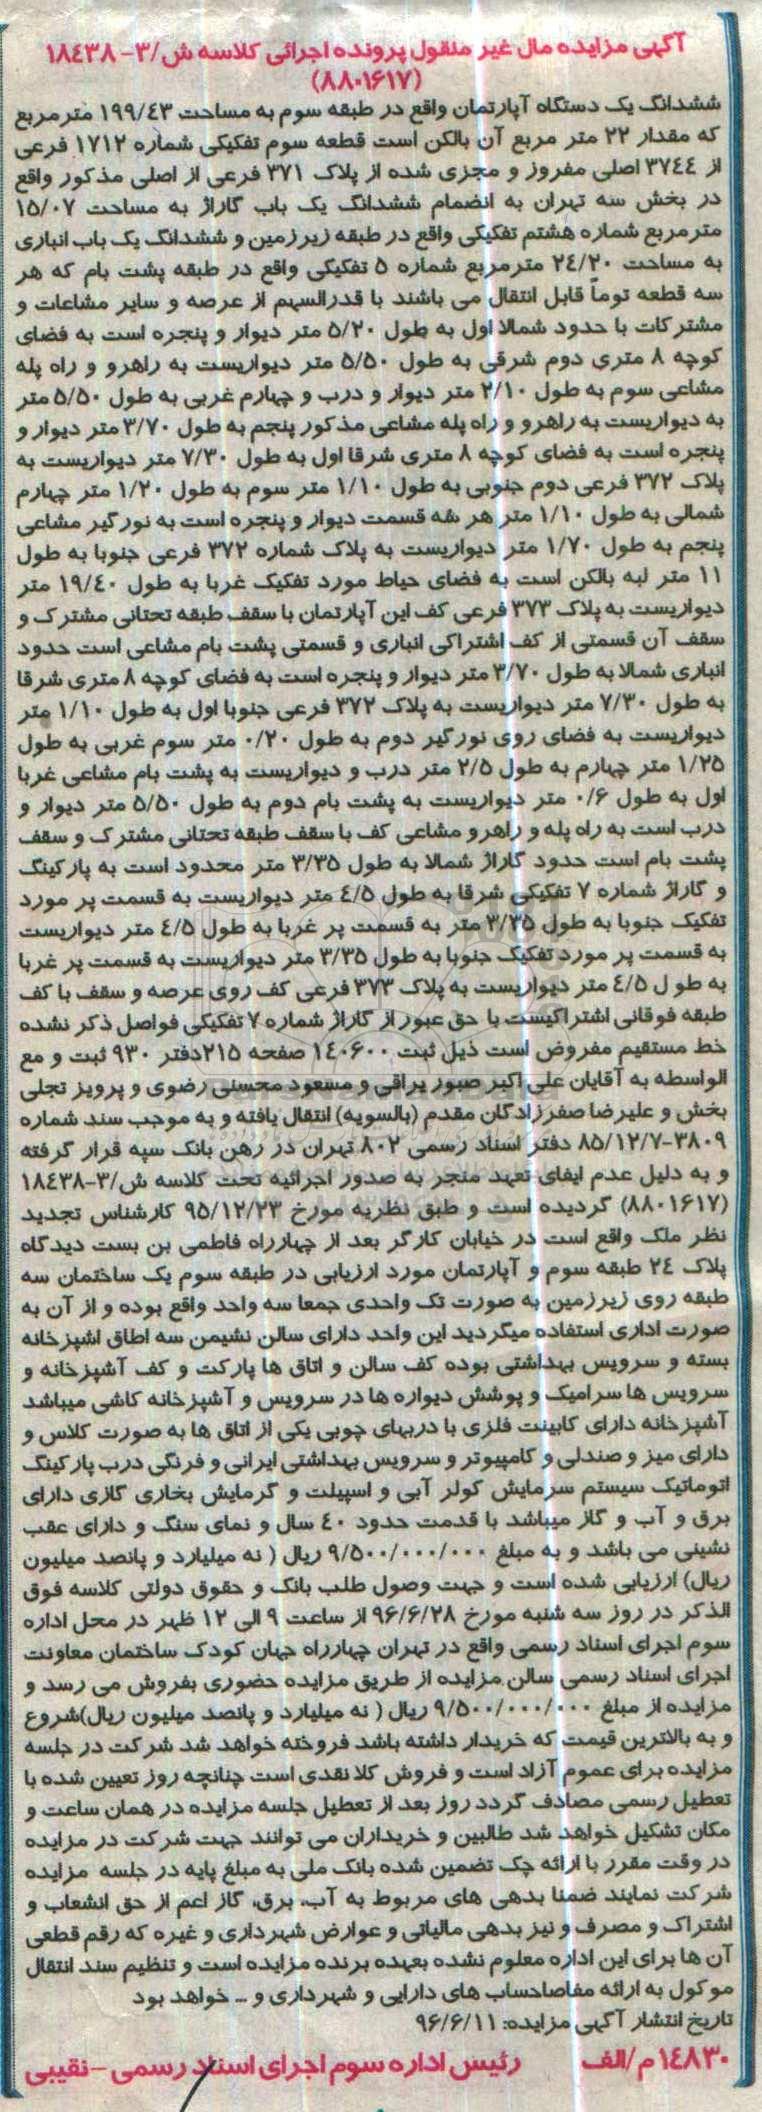 آگهی مزایده مال غیر منقول پرونده اجرائی کلاسه ش/۳- ۱۸۴۳۸
(۸۸۰۱۶۱۷)
ششدانگ یک دستگاه آپارتمان واقع در طبقه سوم به مساحت ۱۹۹/۴۳ مترمربع
که مقدار ۲۲ متر مربع آن بالکن است قطعه سوم تفکیکی شماره ۱۷۱۲ فرعی
از ۳۷۴۴ اصلی مفروز و مجزی شده از پلاک ۳۷۱ فرعی از اصلی مذکور واقع
در بخش سه تهران به انضمام ششدانگ یک باب گاراژ به مساحت ۱۵/۰۷
مترمربع شماره هشتم تفکیکی واقع در طبقه زیرزمین و ششدانگ یک باب انباری
به مساحت ۲۴/۲۰ مترمربع شماره ۵ تفکیکی واقع در طبقه پشت بام که هر
سه قطعه توماً قابل انتقال می باشند با قدرالسهم از عرصه و سایر مشاعات و
مشترکات با حدود شمالا اول به طول ۵/۲۰ متر دیوار و پنجره است به فضای
کوچه ۸ متری دوم شرقی به طول ۵/۵۰ متر دیواریست به راهرو و راه پله
مشاعی سوم به طول ۲/۱۰ متر دیوار و درب و چهارم غربی به طول ۵/۵۰ متر
به دیواریست به راهرو و راه پله مشاعی مذکور پنجم به طول ۳/۷۰ متر دیوار و
پنجره است به فضای کوچه ۸ متری شرقا اول به طول ۷/۳۰ متر دیواریست به
پلاک ۳۷۲ فرعی دوم جنوبی به طول ۱/۱۰ متر سوم به طول ۱/۲۰ متر چهارم
شمالی به طول ۱/۱۰ متر هر سه قسمت دیوار و پنجره است به نورگیر مشاعی
پنجم به طول ۱/۷۰ متر دیواریست به پلاک شماره ۳۷۲ فرعی جنوبا به طول
۱۱ متر لبه بالکن است به فضای حیاط مورد تفکیک غربا به طول ۱۹/۴۰ متر
دیواریست به پلاک ۳۷۳ فرعی کف این آپارتمان با سقف طبقه تحتانی مشترک و
سقف آن قسمتی از کف اشتراکی انباری و قسمتی پشت بام مشاعی است حدود
انباری شمالا به طول ۳/۷۰ متر دیوار و پنجره به فضای کوچه ۸ متری شرقا
به طول ۷/۳۰ متر دیواریست به پلاک ۳۷۲ فرعی جنوبا اول به طول ۱/۱۰ متر
دیواریست به فضای روی نورگیر دوم به طول ۰/۲۰ متر سوم غربی به طول
۱/۲۵ متر چهارم به طول ۲/۵ متر درب و دیواریست به پشت بام مشاعی غربا
اول به طول ۰/۶ متر دیواریست به پشت بام دوم به طول ۵/۵۰ متر دیوار و
درب است به راه پله و راهرو مشاعی کف با سقف طبقه تحتانی مشترک و سقف
پشت بام است حدود گاراژ شمالا به طول ۳/۳۵ متر محدود است به پارکینگ
و گاراژ شماره ۷ تفکیکی شرقا به طول ۴/۵ متر دیواریست به قسمت پر مورد
تفکیک جنوبا به طول ۳/۳۵ متر به قسمت پر غربا به طول ۴/۵ متر دیواریست
به قسمت پر مورد تفکیک جنوبا به طول ۳/۳۵ متر دیواریست به قسمت پر غربا
به طو ل ۴/۵ متر دیواریست به پلاک ۳۷۳ فرعی کف روی عرصه و سقف با کف
طبقه فوقانی اشتراکیست با حق عبور از گاراژ شماره ۷ تفکیکی فواصل ذکر نشده
خط مستقیم مفروض است ذیل ثبت ۱۴۰۶۰۰ صفحه ۲۱۵دفتر ۹۳۰ ثبت و مع
الواسطه به آقایان علی اکبر صبور یراقی و مسعود محسنی رضوی و پرویز تجلی
بخش و علیرضا صفرزادگان مقدم (بالسویه) انتقال یافته و به موجب سند شماره
۳۸۰۹-۸۵/۱۲/۷ دفتر اسناد رسمی ۸۰۲ تهران در رهن بانک سپه قرار گرفته
و به دلیل عدم ایفای تعهد منجر به صدور اجرائیه تحت کلاسه ش/۳-۱۸۴۳۸
(۸۸۰۱۶۱۷) گردیده است و طبق نظریه مورخ ۹۵/۱۲/۲۳ کارشناس تجدید
نظر ملک واقع است در خیابان کارگر بعد از چهارراه فاطمی بن بست دیدگاه
پلاک ۲۴ طبقه سوم و آپارتمان مورد ارزیابی در طبقه سوم یک ساختمان سه
طبقه روی زیرزمین به صورت تک واحدی جمعا سه واحد واقع بوده و از آن به
صورت اداری استفاده میگردید این واحد دارای سالن نشیمن سه اطاق اشپزخانه
بسته و سرویس بهداشتی بوده کف سالن و اتاق ها پارکت و کف آشپزخانه و
سرویس ها سرامیک و پوشش دیواره ها در سرویس و آشپزخانه کاشی میباشد
آشپزخانه دارای کابینت فلزی با دربهای چوبی یکی از اتاق ها به صورت کلاس و
دارای میز و صندلی و کامپیوتر و سرویس بهداشتی ایرانی و فرنگی درب پارکینگ
اتوماتیک سیستم سرمایش کولر آبی و اسپیلت و گرمایش بخاری گازی دارای
برق و آب و گاز میباشد با قدمت حدود ۴۰ سال و نمای سنگ و دارای عقب
نشینی می باشد و به مبلغ ۹/۵۰۰/۰۰۰/۰۰۰ ریال ( نه میلیارد و پانصد میلیون
ریال) ارزیابی شده است و جهت وصول طلب بانک و حقوق دولتی کلاسه فوق
الذکر در روز سه شنبه مورخ ۹۶/۶/۲۸ از ساعت ۹ الی ۱۲ ظهر در محل اداره
سوم اجرای اسناد رسمی واقع در تهران چهارراه جهان کودک ساختمان معاونت
اجرای اسناد رسمی سالن مزایده از طریق مزایده حضوری بفروش می رسد و
مزایده از مبلغ ۹/۵۰۰/۰۰۰/۰۰۰ ریال ( نه میلیارد و پانصد میلیون ریال)شروع
و به بالاترین قیمت که خریدار داشته باشد فروخته خواهد شد شرکت در جلسه
مزایده برای عموم آزاد است و فروش کلا نقدی است چنانچه روز تعیین شده با
تعطیل رسمی مصادف گردد روز بعد از تعطیل جلسه مزایده در همان ساعت و
مکان تشکیل خواهد شد طالبین و خریداران می توانند جهت شرکت در مزایده
در وقت مقرر با ارائه چک تضمین شده بانک ملی به مبلغ پایه در جلسه مزایده
شرکت نمایند ضمنا بدهی های مربوط به آب، برق، گاز اعم از حق انشعاب و
اشتراک و مصرف و نیز بدهی مالیاتی و عوارض شهرداری و غیره که رقم قطعی
آن ها برای این اداره معلوم نشده بعهده برنده مزایده است و تنظیم سند انتقال
موکول به ارائه مفاصاحساب های دارایی و شهرداری و ... خواهد بود
تاریخ انتشار آگهی مزایده: ۹۶/۶/۱۱
۱۴۸۳۰م/الف رئیس اداره سوم اجرای اسناد رسمی -نقیبی